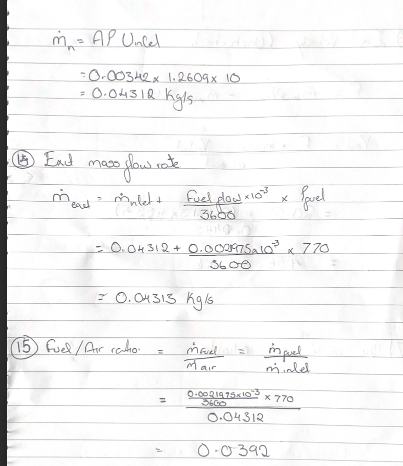 ṁn = AP Uinlet
= 0.00342 x 1.2609 x 10
= 0.04312 Kg/s
⑭ Exit mass flow rate
ṁexit = ṁinlet + Fuel flow x 10⁻³ / 3600 x ρfuel
= 0.04312 + 0.002975 x 10⁻³ / 3600 x 770
= 0.04313 Kg/s
⑮ Fuel/Air ratio = ṁfuel / ṁair = ṁfuel / ṁinlet
= 0.0021975x10⁻³ / 3600 x 770 / 0.04312
= 0.0392